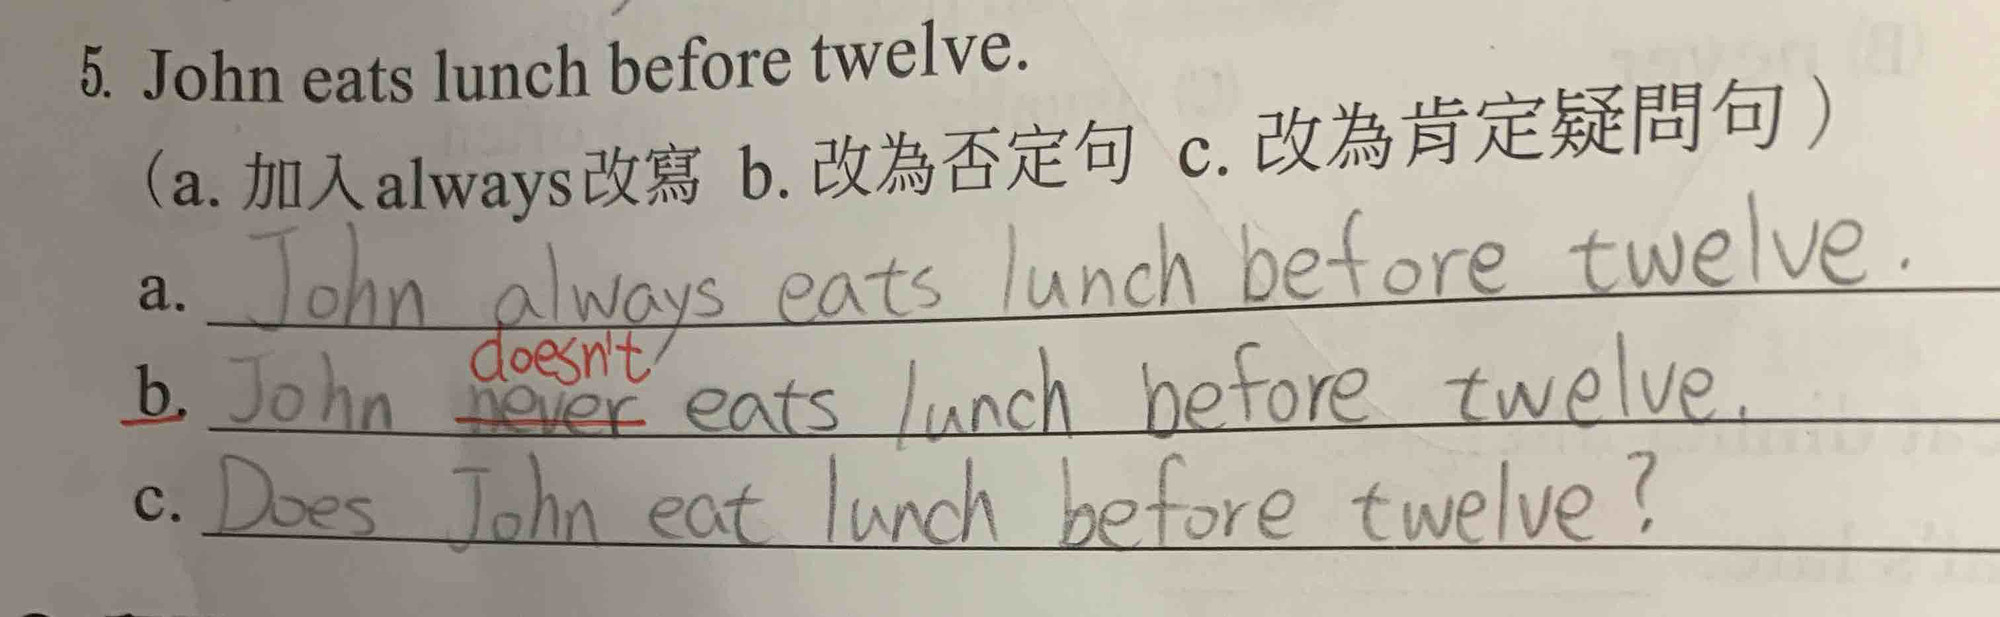 5. John eats lunch before twelve.
（a. 加入always改寫 b. 改為否定句 c. 改為肯定疑問句）
a. John always eats lunch before twelve.
doesn't
b. John never eats lunch before twelve.
c. Does John eat lunch before twelve?